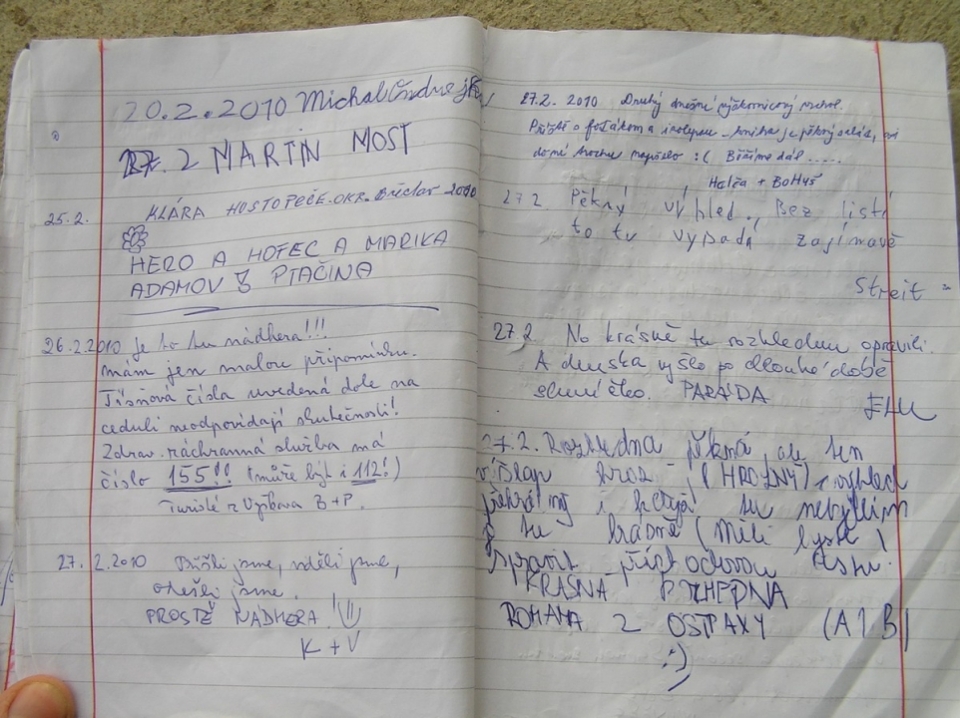 20.2.2010 Michal Ondrejk
27. 2 MARTIN MOST
25.2.
KLÁRA HOSTOPEČE. OKR. Břeclav 2010
HERO A HOFEC A MARIKA
ADAMOV PTAČINA
26.2.2010 Je to tu nádhera!!!
mám jen malou připomínku.
Tísňová čísla uvedená dole na
ceduli neodpovídají skutečnosti!
Zdrav. záchranná služba má
číslo 155!! (může být i 112!)
Turisté z Vyžbova B+P.
27.2.2010 Přišli jsme, viděli jsme,
odešli jsme.
PROSTĚ NÁDHERA!
K + V
27.2. 2010 Druhý dnešní výškovnicový vrchol.
Příště o foťákem a - kniha je pěkný, asi
domé trochu :( Běžíme dál .....
Halča + BoHuš
27 2 Pěkný výhled., Bez listí
to tu vypadá zajímavě
Streit
27.2. No krásně tu rozhlednu opravili.
A dneska vyšlo po dlouhé době
sluníčko. PARÁDA
27.2. Rozhledna pěkná, ale ten
výšlap hroz- (HROZNÝ)
i tu
tu krásně (Milí lysti)
Spravit
KRASNA RZHEDNA
ROMANA Z OSTRAXY (A1B)
:)